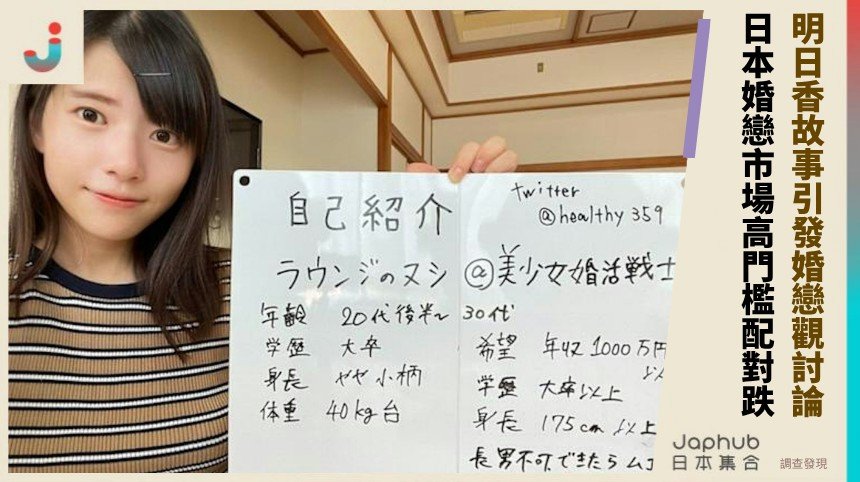 明日香故事引發婚戀觀討論
日本婚戀市場高門檻配對跌
自己紹介
twitter
@healthy359
ラウンジのヌシ@美少女婚活戦士
年齢 20代後半~30代
学歴 大卒
身長 やや小柄
体重 40kg台
希望 年収1000万円
以
学歴 大卒以上
身長 175cm以上
長男不可できたら
Japhub
日本集合
調查發現